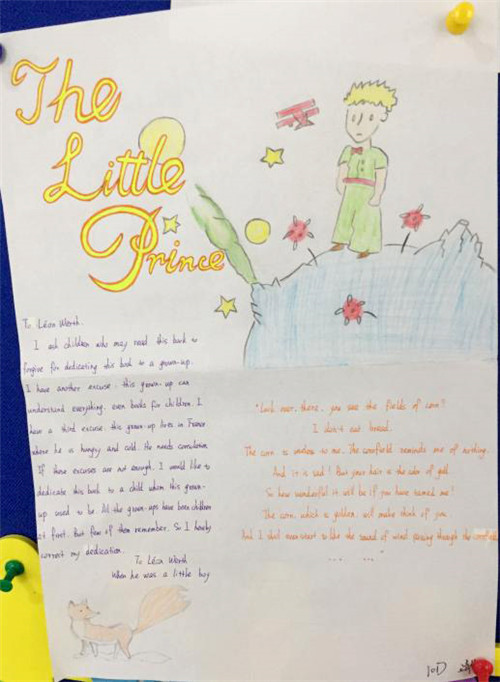 The
Little
Prince
To Léon Werth.
I ask children who may read this book to
forgive for dedicating this book to a grown-up.
I have another excuse. this grown-up can
understand everything. even books for children. I
have a third excuse. this grown-up lives in France
where he is hungry and cold. He needs consolation
If these excuses are not enough. I would like to
dedicate this book to a child whom this grown-
up used to be. All the grown-ups have been children
at first. But few of them remember. So I hereby
correct my dedication.
To Léon Werth
When he was a little boy
"Look over, there. you see the fields of corn?
I don't eat bread.
The corn is useless to me. The cornfield reminds me of nothing.
And it is sad! But your hair is the color of gold.
So how wonderful it will be if you have tamed me!
The corn, which is golden. will make think of you.
And I shall even start to like the sound of wind passing through the cornfield
... ... ..."